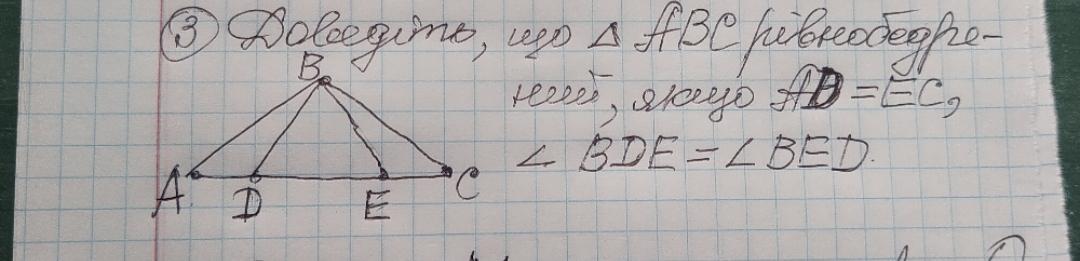 ③ Доведіть, що △ ABC рівнобедре-
ний, якщо AD = EC,
∠ BDE = ∠ BED.
B
A
D
E
C